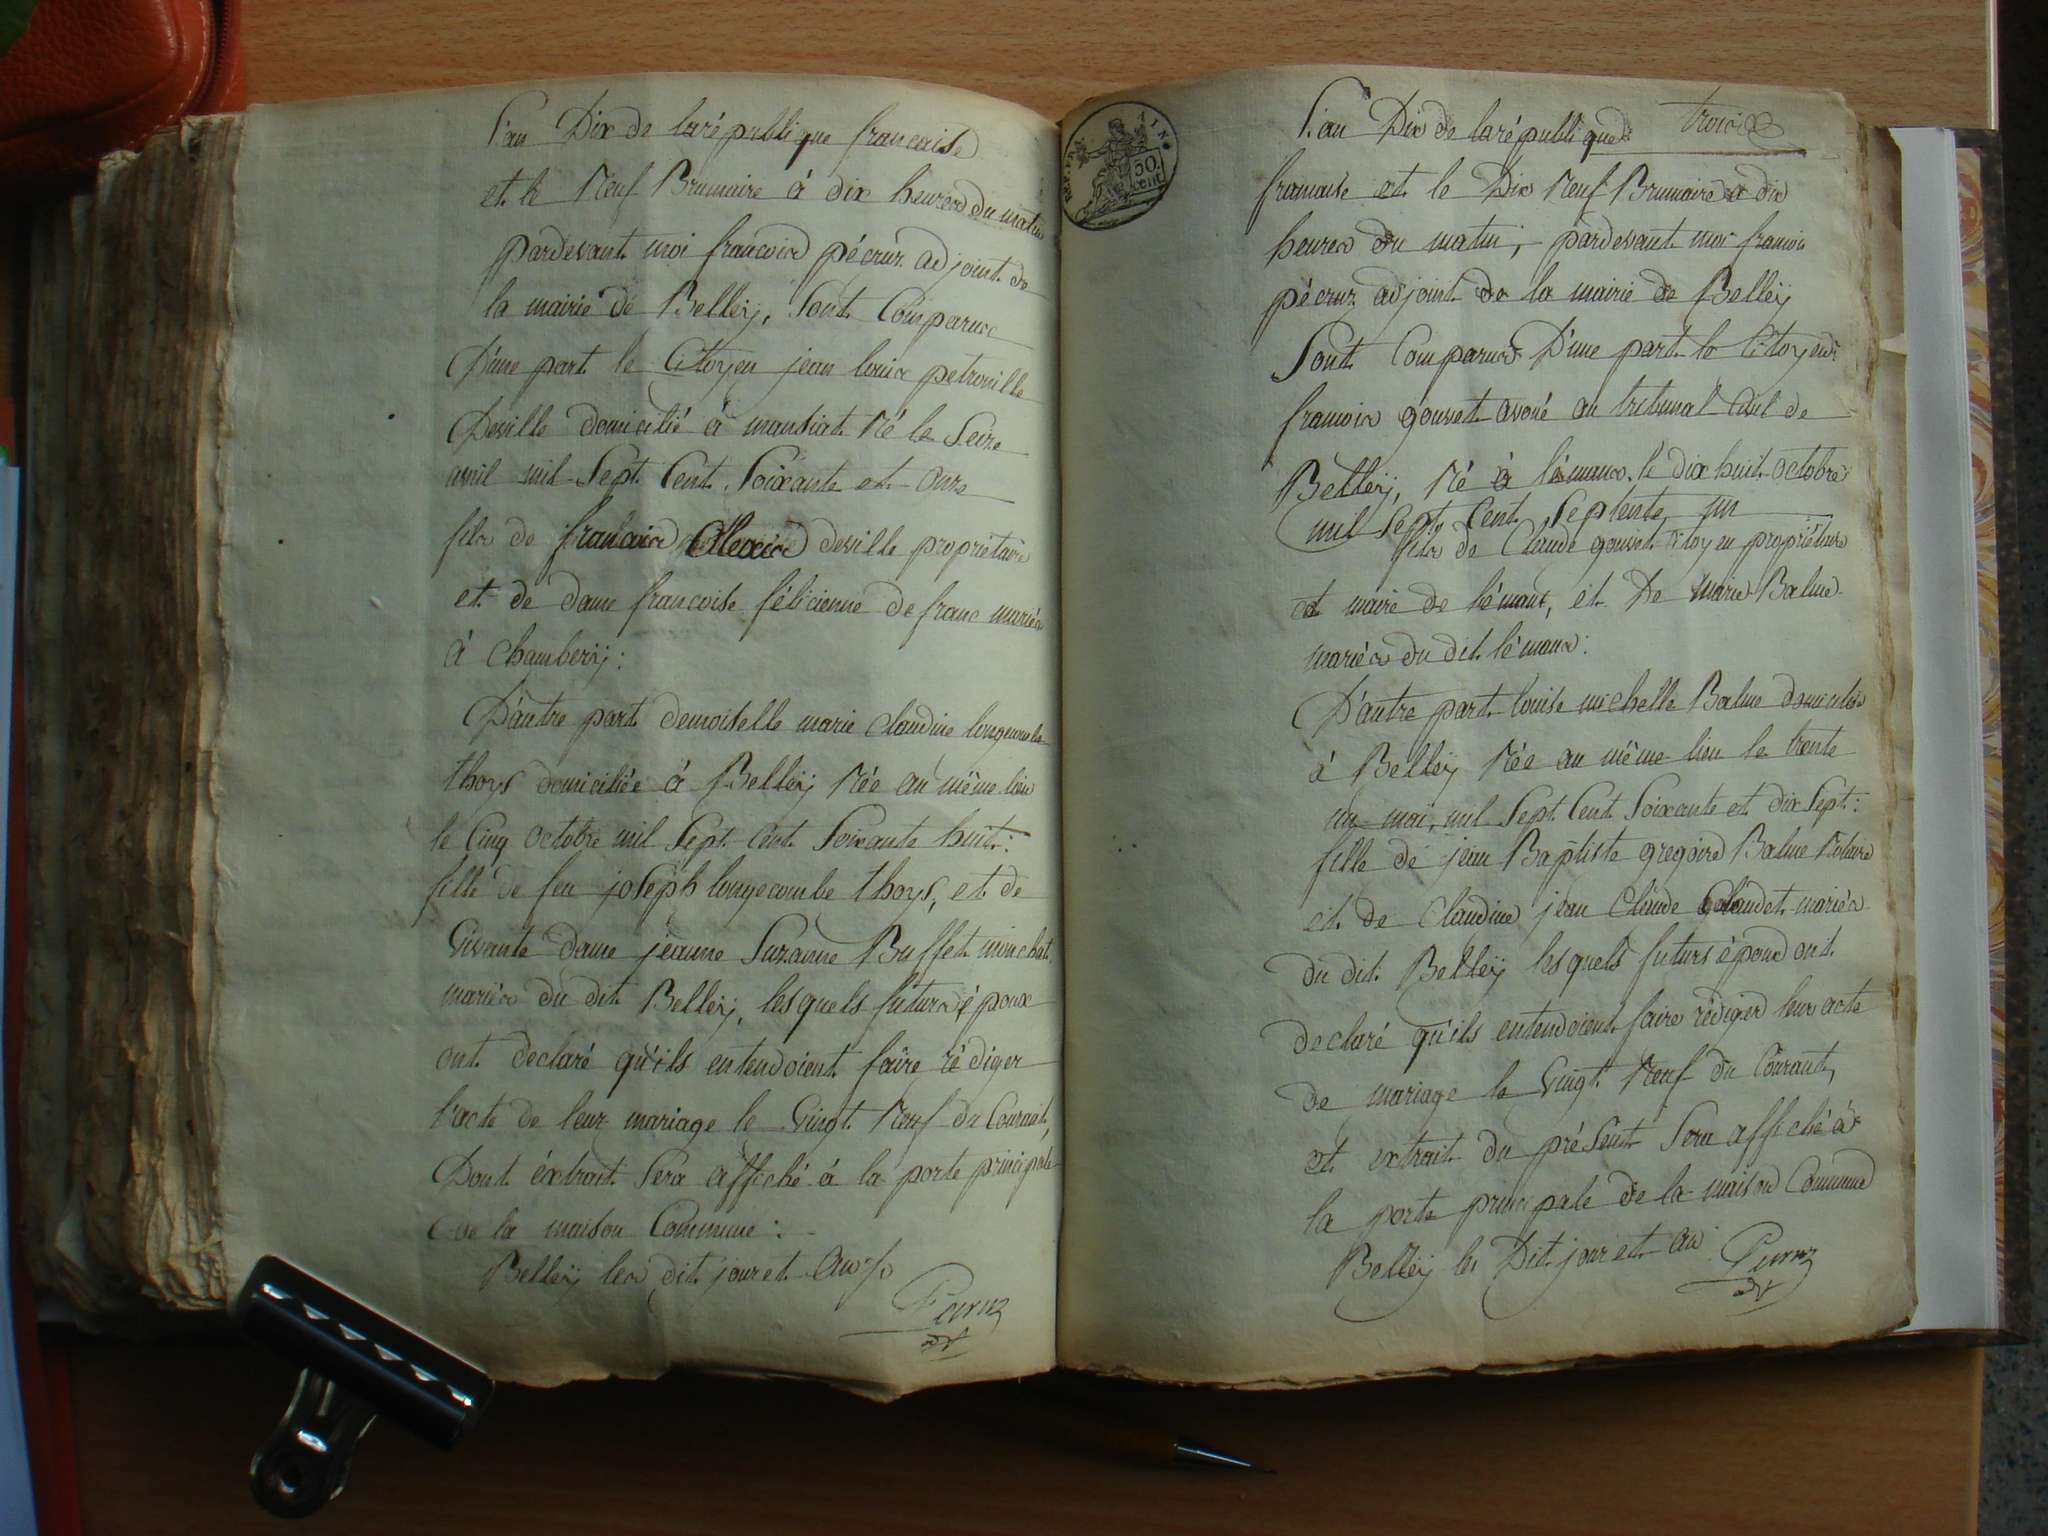 L'an Dix de la république francaise
et le Neuf Brumaire à dix heures du matin
pardevant moi francois pécruz adjoint de
la mairie de Belleÿ, Sont Comparus
D'une part le Citoyen jean louis petronille
Deville domicilié à mansiat Né le Seize
avril mil Sept Cent Soixante et onze
fils de francois Alexis deville propriétaire
et de dame francoise félicienne de franc mariés
à Chamberÿ :
D'autre part demoiselle marie claudine longecombe
thoys domiciliée à Belleÿ Née au même lieu
le Cinq octobre mil Sept Cent Soixante huit :
fille de feu joseph longecombe thoys, et de
Vivante dame jeanne Suzanne Buffet
mariés du dit Belleÿ, lesquels futurs époux
ont declaré qu'ils entendoient faire rédiger
l'acte de leur mariage le Vingt Neuf du Courant,
Dont éxtrait Sera affiché à la porte principale
de la maison Commune :
Belleÿ les dit jour et an
Pécruz
adt
REP. FRA. AIN
50 cent
L'an Dix de la république trois
francaise et le Dix Neuf Brumaire a dix
heures du matin, pardevant moi francois
pécruz adjoint de la mairie de Belleÿ
Sont Comparus D'une part le Citoyen
francois gouvet avoué au tribunal Civil de
Belleÿ, Né à lémanc le dix huit octobre
mil Sept Cent Septente un
fils de Claude gouvet Citoyen propriétaire
et maire de lémanc, et De marie Balme
mariés du dit lémanc :
D'autre part louise michelle Balme domiciliée
à Belleÿ Née au même lieu le trente
un mai, mil Sept Cent Soixante et dix Sept :
fille de jean Baptiste gregoire Balme Notaire
et de Claudine jean Claude mariés
du dit Belleÿ lesquels futurs époux ont
declaré qu'ils entendoient faire rédiger leur acte
de mariage le Vingt Neuf du Courant,
et extrait du présent Sera affiché à
la porte principale de la maison Commune
Belleÿ les Dit jour et an Pécruz
adt